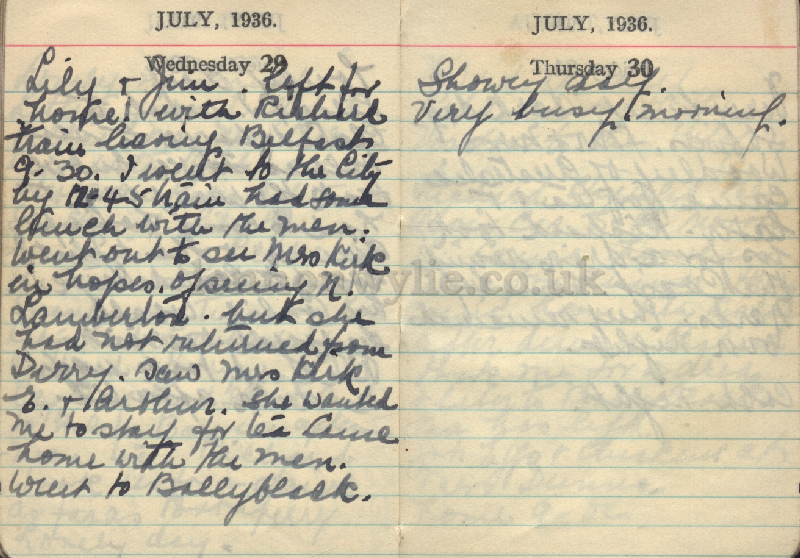 JULY, 1936.
Wednesday 29
Lily + Jim . left for
home! with Richard
train leaving Belfast
9-30. I went to the City
by 12-45 train had some
lunch with the men.
Went out to see Mrs Kirk
in hopes of seeing N.
Lamberton. but she
had not returned from
Derry. Saw Mrs Kirk
E. + Arthur. She wanted
me to stay for tea Came
home with the men.
Went to Ballyblack.
JULY, 1936.
Thursday 30
Showery day.
Very busy morning.
wylie.co.uk